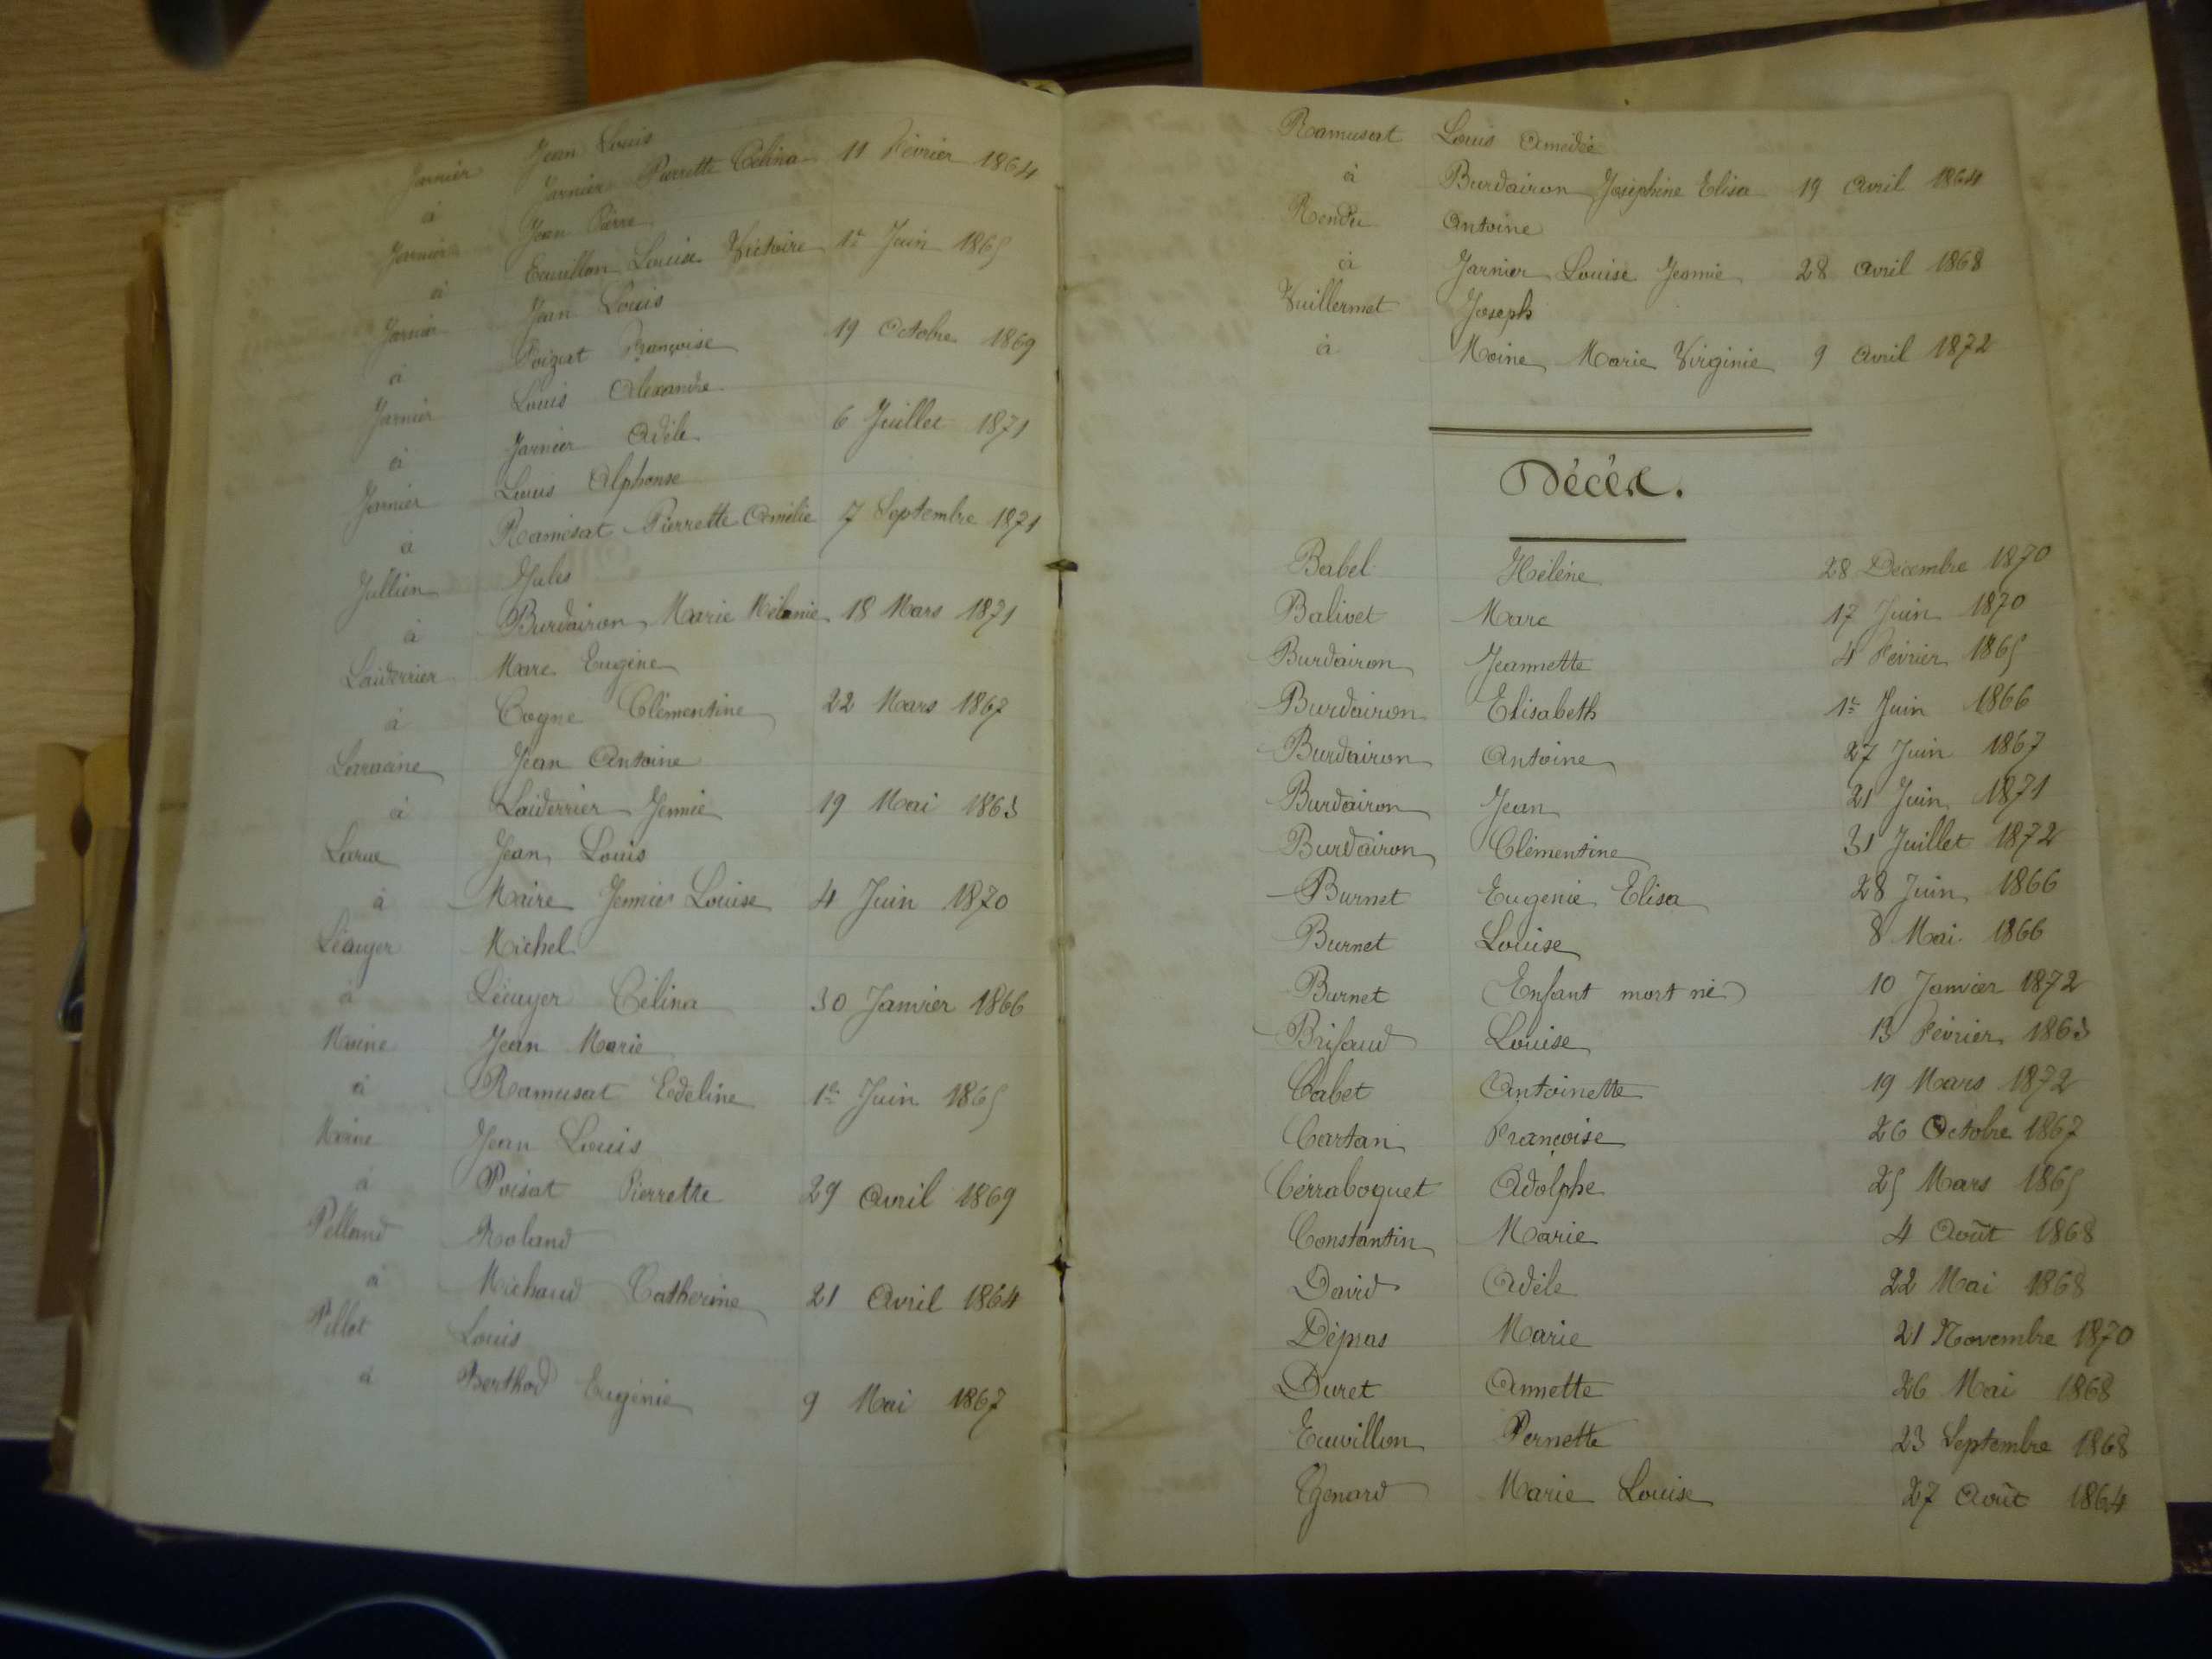 Jarnier Jean Louis
à Jarnier Pierrette Célina 11 Février 1864
Jarnier Jean Pierre
à Ecuvillon Louise Victoire 1er Juin 1865
Jarnier Jean Louis
à Poizat Françoise 19 Octobre 1869
Jarnier Louis Alexandre
à Jarnier Adèle 6 Juillet 1871
Jarnier Louis Alphonse
à Ramusat Pierrette Amélie 7 Septembre 1871
Jullien Jules
à Burdairon Marie Mélanie 18 Mars 1871
Laiderrier Marc Eugène
à Cogne Clémentine 22 Mars 1867
Laracine Jean Antoine
à Laiderrier Jennie 19 Mai 1863
Larue Jean Louis
à Maire Jennie Louise 4 Juin 1870
Lécuyer Michel
à Lécuyer Célina 30 Janvier 1866
Moine Jean Marie
à Ramusat Edeline 1er Juin 1865
Moine Jean Louis
à Poisat Pierrette 29 Avril 1869
Pelland Roland
à Michaud Catherine 21 Avril 1864
Pillot Louis
à Berthod Eugénie 9 Mai 1867
Ramusat Louis Amédée
à Burdairon Joséphine Elisa 19 Avril 1864
Rendu Antoine
à Jarnier Louise Jennie 28 Avril 1868
Vuillermet Joseph
à Moine Marie Virginie 9 Avril 1872
Décès.
Babel Hélène 28 Décembre 1870
Balivet Marc 17 Juin 1870
Burdairon Jeannette 4 Février 1865
Burdairon Elisabeth 1er Juin 1866
Burdairon Antoine 27 Juin 1867
Burdairon Jean 21 Juin 1871
Burdairon Clémentine 31 Juillet 1872
Burnet Eugénie Elisa 28 Juin 1866
Burnet Louise 8 Mai 1866
Burnet (Enfant mort né) 10 Janvier 1872
Brifaud Louise 13 Février 1863
Cabet Antoinette 19 Mars 1872
Cartan Françoise 26 Octobre 1867
Cérraboquet Adolphe 25 Mars 1865
Constantin Marie 4 Août 1868
David Adèle 22 Mai 1868
Dépras Marie 21 Novembre 1870
Duret Annette 26 Mai 1868
Ecuvillon Pernette 23 Septembre 1868
Genard Marie Louise 27 Août 1864